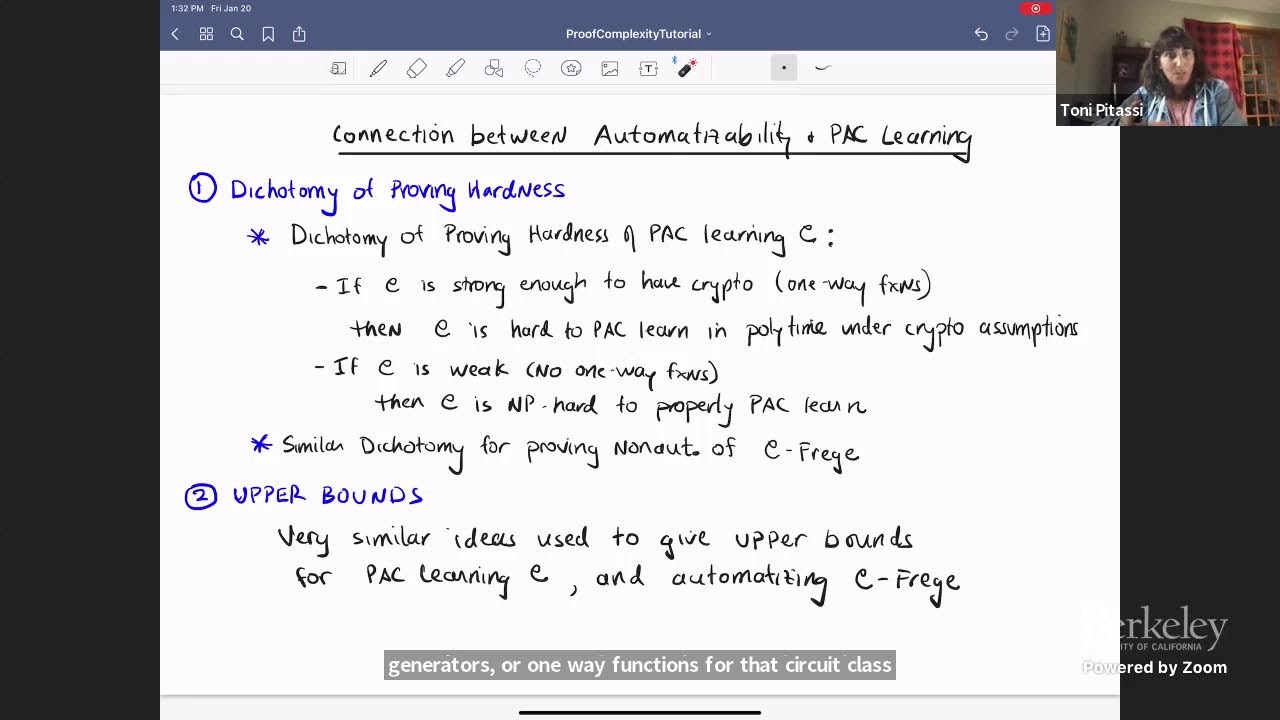 1:32 PM Fri Jan 20
ProofComplexityTutorial
Toni Pitassi
Connection between Automatizability & PAC Learning
① Dichotomy of Proving Hardness
* Dichotomy of Proving Hardness of PAC learning C:
- If C is strong enough to have crypto (one-way fxns)
then C is hard to PAC learn in polytime under crypto assumptions
- If C is weak (No one-way fxns)
then C is NP-hard to properly PAC learn
* Similar Dichotomy for proving Nonaut. of C-Frege
② UPPER BOUNDS
Very similar ideas used to give upper bounds
for PAC learning C, and automatizing C-Frege
generators, or one way functions for that circuit class
Berkeley
UNIVERSITY OF CALIFORNIA
Powered by Zoom